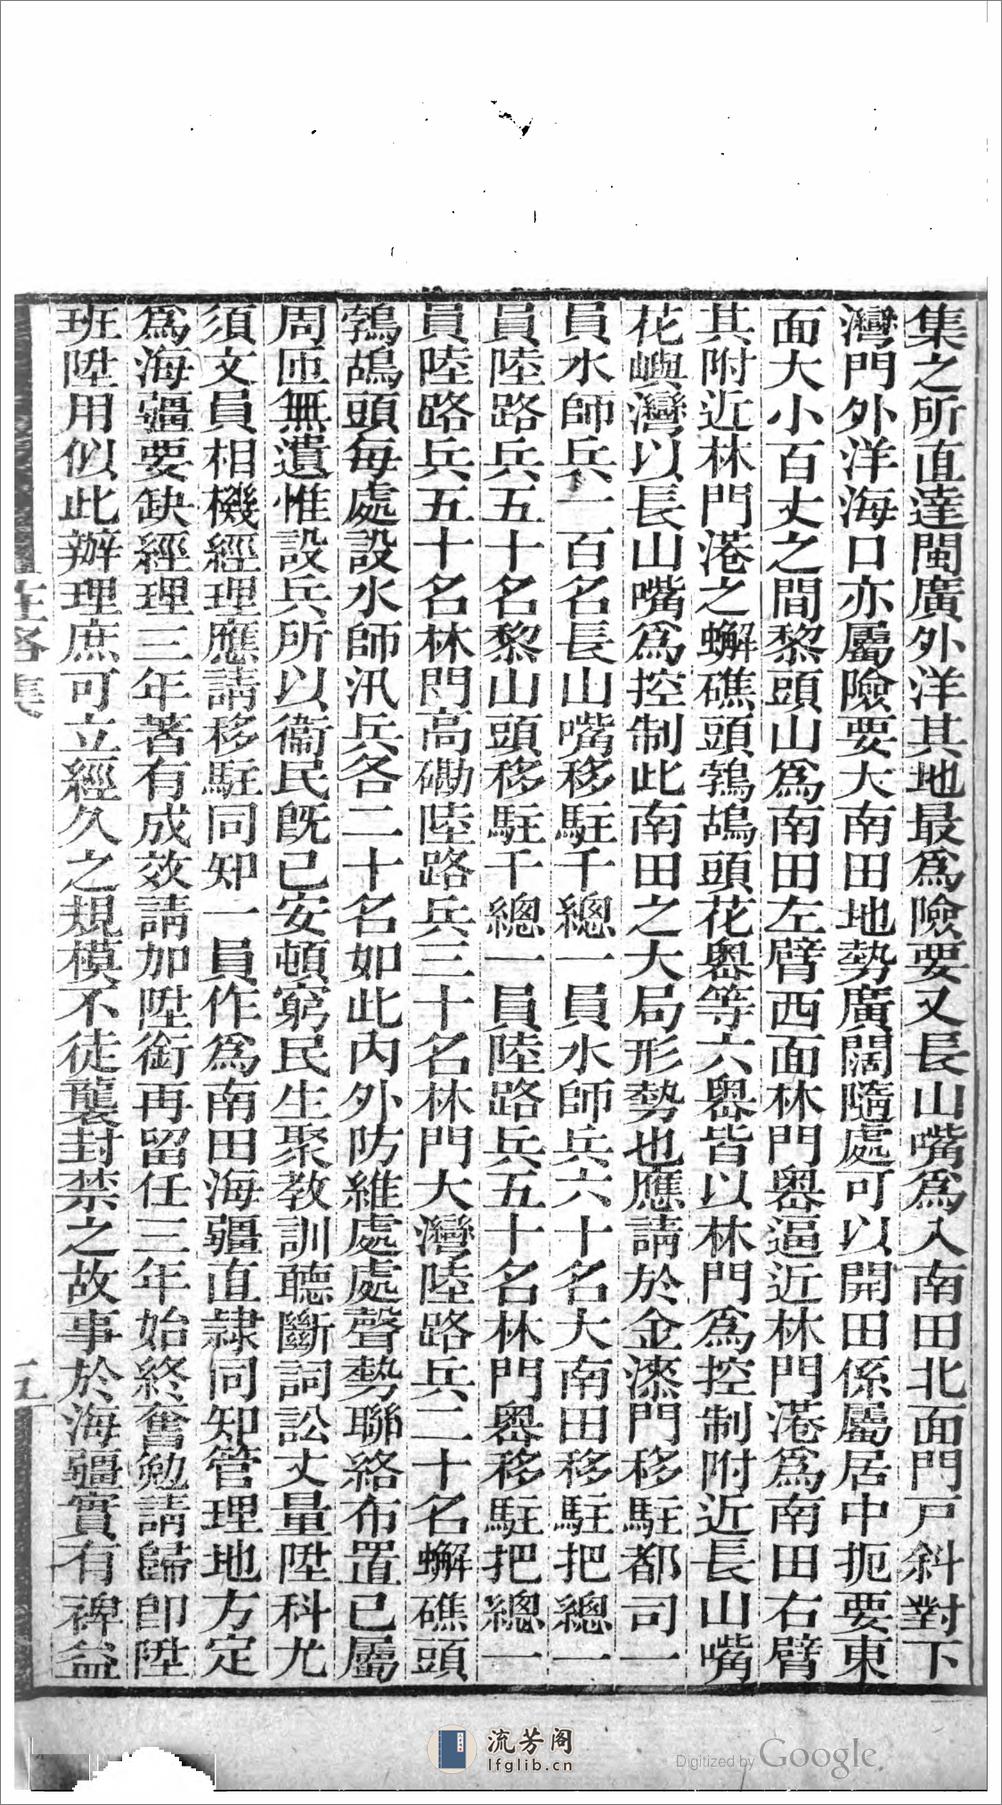 集之所直達閩廣外洋其地最爲險要又長山嘴爲入南田北面門戸斜對下
灣門外洋海口亦屬險要大南田地勢廣闊隨處可以開田係屬居中扼要東
面大小百丈之間黎頭山爲南田左臂西面林門嶴逼近林門港爲南田右臂
其附近林門港之蠏礁頭鶉鴣頭花嶴等六嶴皆以林門爲控制附近長山嘴
花嶼灣以長山嘴爲控制此南田之大局形勢也應請於金漆門移駐都司一
員水師兵一百名長山嘴移駐千總一員水師兵六十名大南田移駐把總一
員陸路兵五十名黎山頭移駐千總一員陸路兵五十名林門嶴移駐把總一
員陸路兵五十名林門高磡陸路兵三十名林門大灣陸路兵二十名蠏礁頭
鶉鴣頭每處設水師汛兵各二十名如此內外防維處處聲勢聯絡布置已屬
周匝無遺惟設兵所以衞民旣已安頓窮民生聚教訓聽斷詞訟丈量陞科尤
須文員相機經理應請移駐同知一員作爲南田海疆直隸同知管理地方定
爲海疆要缺經理三年著有成效請加陞銜再留任三年始終奮勉請歸卽陞
班陞用似此辦理庶可立經久之規模不徒襲封禁之故事於海疆實有裨益
五
流芳阁
lfglib.cn
Digitized by Google